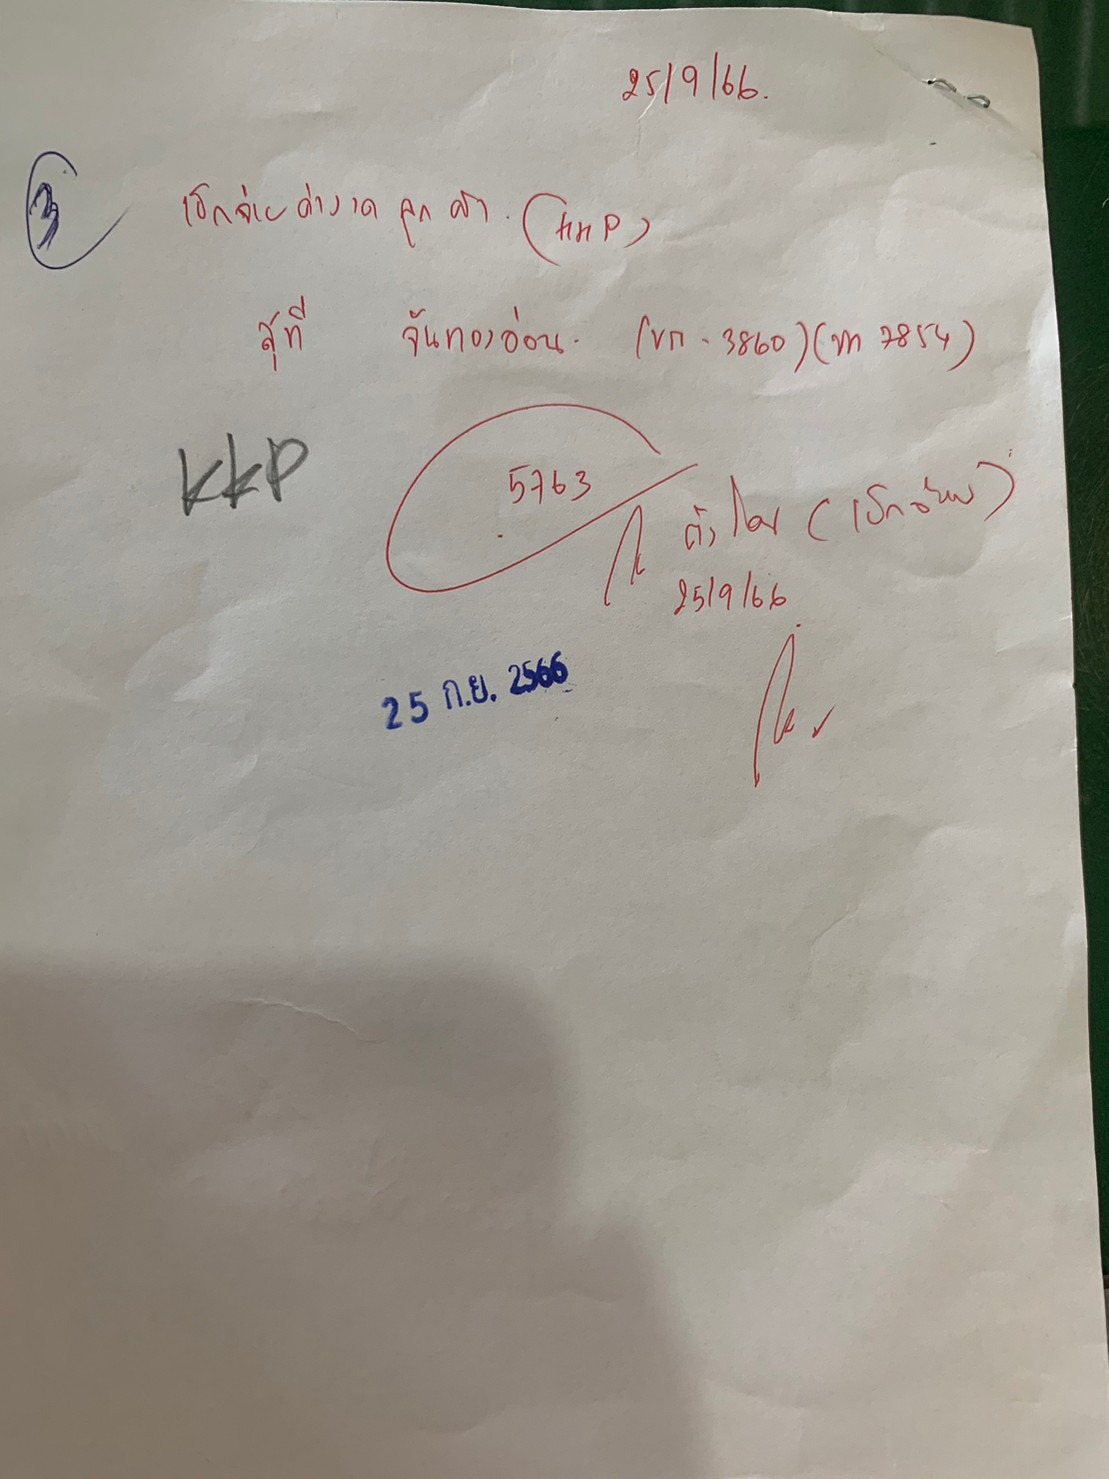 25/9/66.
3
เบิกจ่าย ค่างวด ลูกค้า. (KKP)
สุที จันทองอ่อน. (บก - 3860) (บก 7854)
KKP
5763
ตั้งโดย (เบิกจ่าย)
25/9/66
25 ก.ย. 2566